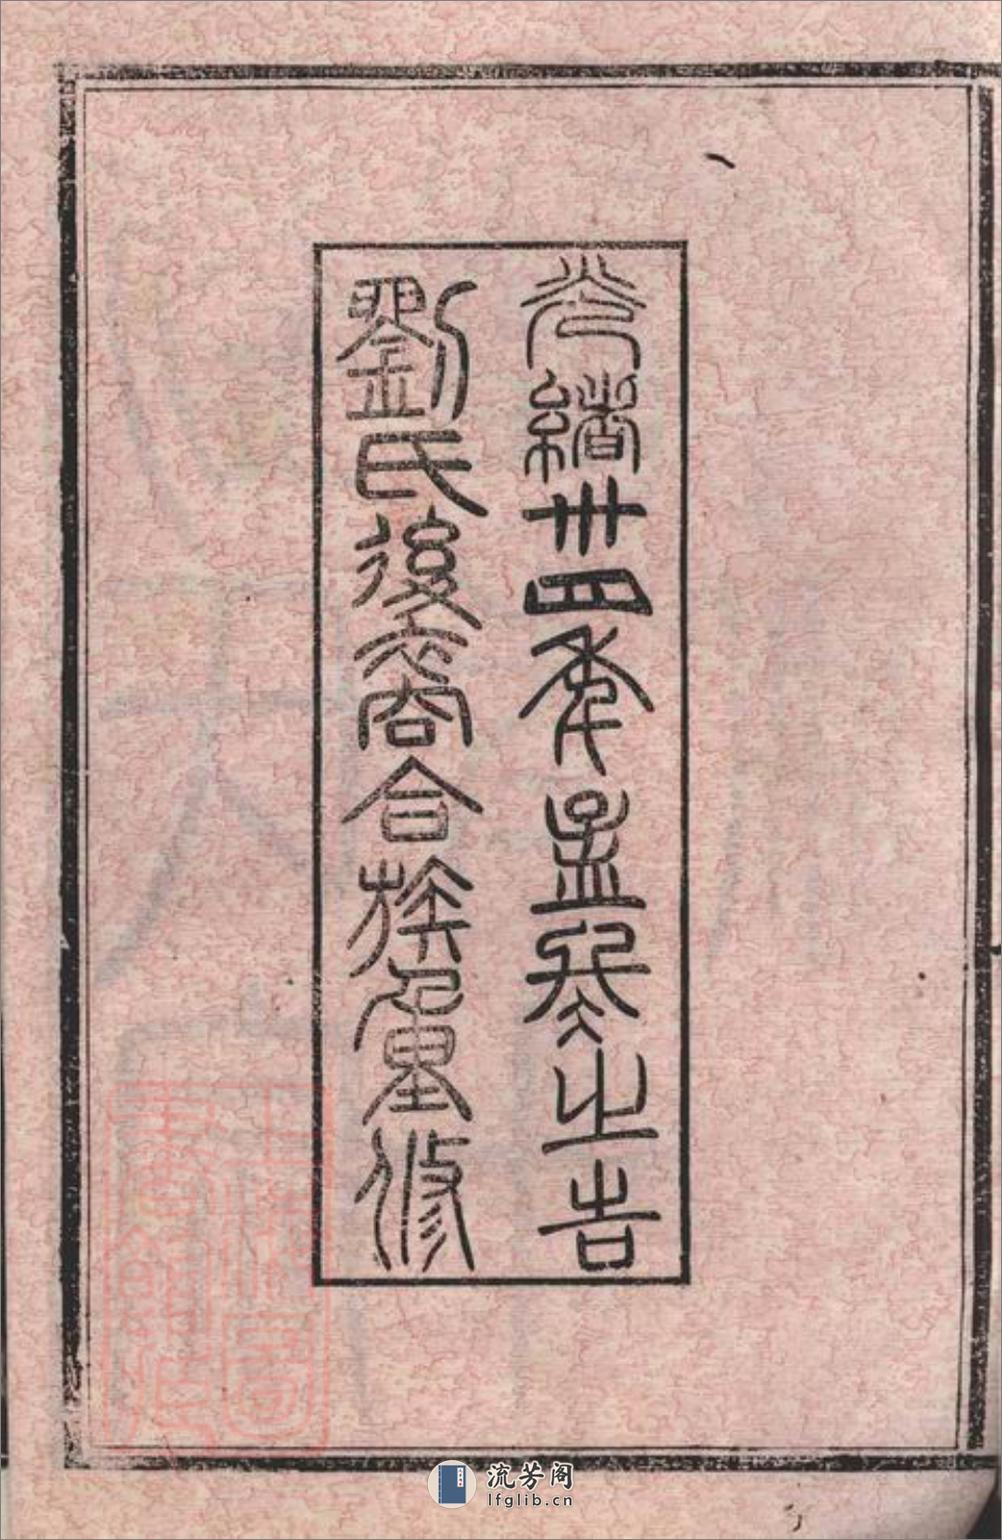 光緒卅四年孟冬之吉
劉氏後裔合族重修
流芳阁
lfglib.cn